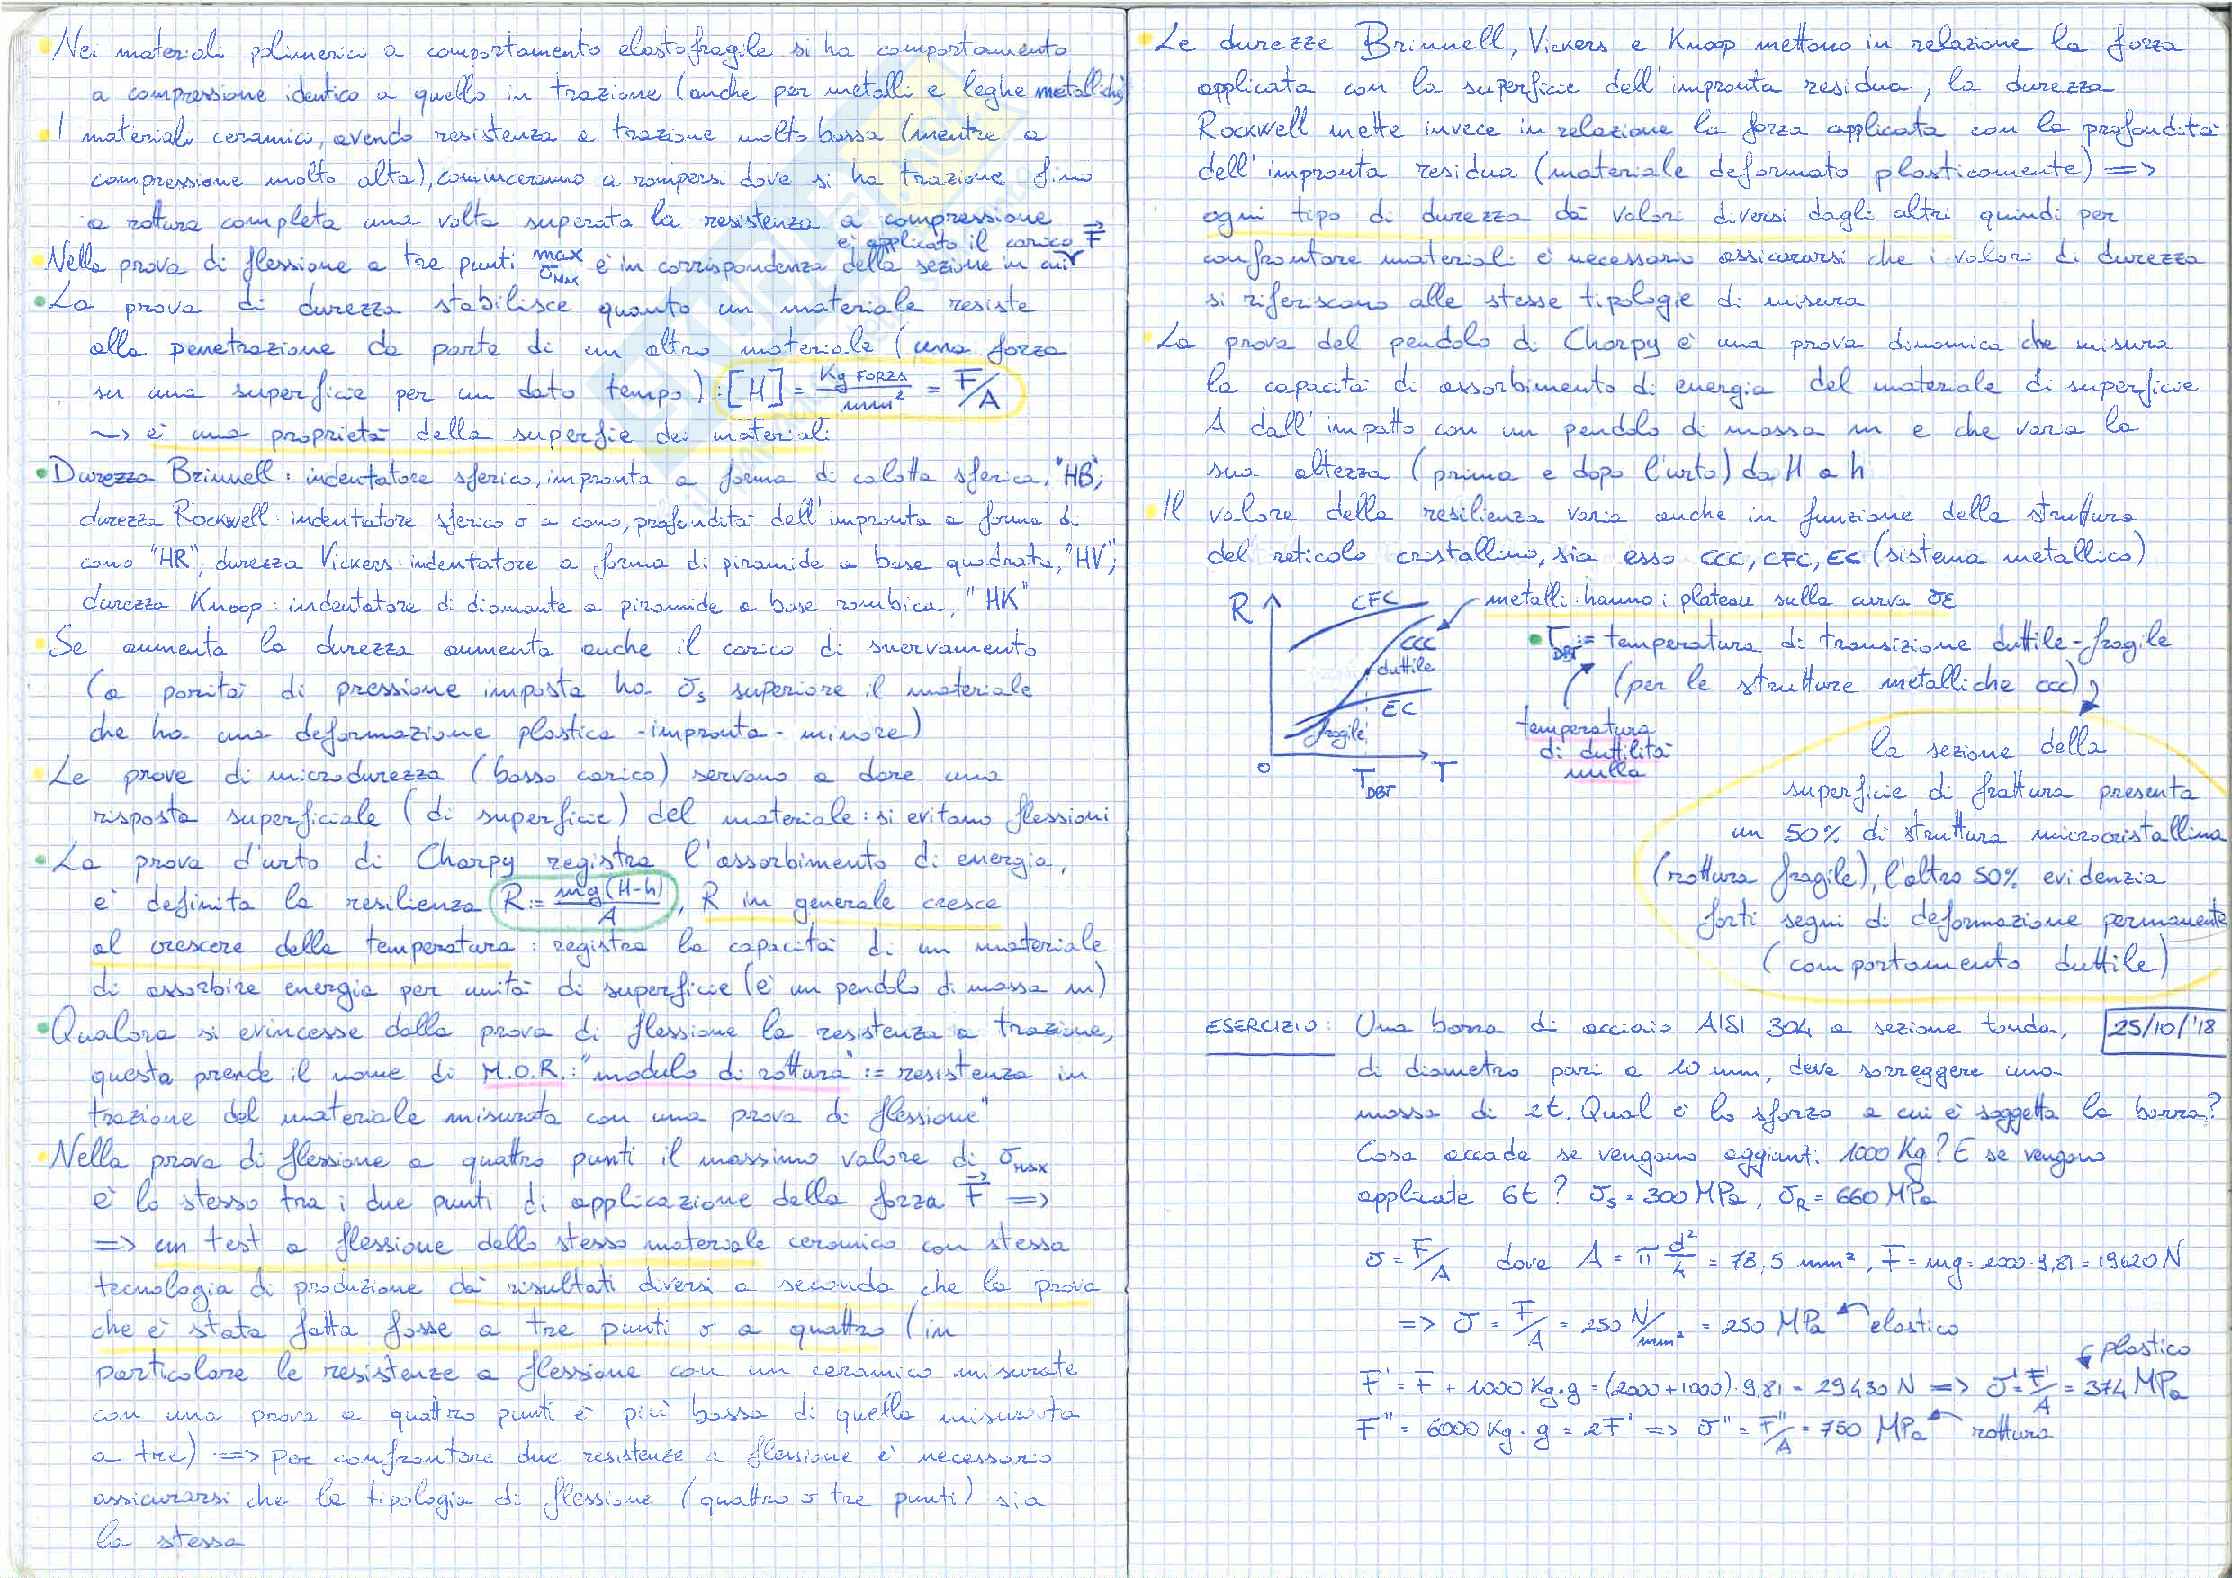 Nei materiali polimerici a comportamento elastofragile si ha comportamento
a compressione identico a quello in trazione (anche per metalli e leghe metalliche)
I materiali ceramici, avendo resistenza a trazione molto bassa (mentre a
compressione molto alta), cominceranno a rompersi dove si ha trazione fino
a rottura completa una volta superata la resistenza a compressione
Nella prova di flessione a tre punti max σMAX è in corrispondenza della sezione in cui
è applicato il carico F
La prova di durezza stabilisce quanto un materiale resiste
alla penetrazione da parte di un altro materiale (una forza
su una superficie per un dato tempo): [H] = Kg FORZA / mm² = F/A
~> è una proprietà della superfie dei materiali
Durezza Brinnell: indentatore sferico, impronta a forma di calotta sferica, "HB";
durezza Rockwell: indentatore sferico o a cono, profondità dell'impronta a forma di
cono "HR", durezza Vickers indentatore a forma di piramide a base quadrata, "HV";
durezza Knoop: indentatore di diamante a piramide a base rombica, "HK"
Se aumenta la durezza aumenta anche il carico di snervamento
(a parità di pressione imposta ha σs superiore il materiale
che ha una deformazione plastica -impronta- minore)
Le prove di microdurezza (basso carico) servono a dare una
risposta superficiale (di superficie) del materiale: si evitano flessioni
La prova d'urto di Charpy registra l'assorbimento di energia,
è definita la resilienza R:= mg(H-h) / A, R in generale cresce
al crescere della temperatura: registra la capacità di un materiale
di assorbire energia per unità di superficie (è un pendolo di massa m)
Qualora si evincesse dalla prova di flessione la resistenza a trazione,
questa prende il nome di M.O.R.: "modulo di rottura := resistenza in
trazione del materiale misurata con una prova di flessione"
Nella prova di flessione a quattro punti il massimo valore di σMAX
è lo stesso tra i due punti di applicazione della forza F =>
=> un test a flessione dello stesso materiale ceramico con stessa
tecnologia di produzione dà risultati diversi a seconda che la prova
che è stata fatta fosse a tre punti o a quattro (in
particolare le resistenze a flessione con un ceramico misurate
con una prova a quattro punti è più bassa di quella misurata
a tre) => per confrontare due resistenze a flessione è necessario
assicurarsi che la tipologia di flessione (quattro o tre punti) sia
la stessa
Le durezze Brinnell, Vickers e Knoop mettono in relazione la forza
applicata con la superficie dell'impronta residua, la durezza
Rockwell mette invece in relazione la forza applicata con la profondità
dell'impronta residua (materiale deformato plasticamente) =>
ogni tipo di durezza dà valori diversi dagli altri quindi per
confrontare materiali è necessario assicurarsi che i valori di durezza
si riferiscano alle stesse tipologie di misura
La prova del pendolo di Charpy è una prova dinamica che misura
la capacità di assorbimento di energia del materiale di superficie
A dall'impatto con un pendolo di massa m e che varia la
sua altezza (prima e dopo l'urto) da H a h
Il valore della resilienza varia anche in funzione della struttura
del reticolo cristallino, sia esso CCC, CFC, EC (sistema metallico)
R
CFC
metalli hanno i plateau sulla curva σε
CCC
duttile
EC
fragile
O
TDBT
T
TDBT := temperatura di transizione duttile-fragile
(per le strutture metalliche CCC)
temperatura
di duttilità
nulla
la sezione della
superficie di frattura presenta
un 50% di struttura microcristallina
(rottura fragile), l'altro 50% evidenzia
forti segni di deformazione permanente
(comportamento duttile)
ESERCIZIO: Una barra di acciaio AISI 304 a sezione tonda, 25/10/'18
di diametro pari a 10 mm, deve sorreggere una
massa di 2t. Qual è lo sforzo a cui è soggetta la barra?
Cosa accade se vengono aggiunti 1000 Kg? E se vengono
applicate 6t? σs = 300 MPa, σR = 660 MPa
σ = F/A dove A = π d²/4 = 78,5 mm², F = mg = 2000·9,81 = 19620 N
=> σ = F/A = 250 N/mm² = 250 MPa elastico
plastico
F' = F + 1000 Kg·g = (2000+1000)·9,81 = 29430 N => σ' = F'/A = 374 MPa
F'' = 6000 Kg·g = 2F' => σ'' = F''/A = 750 MPa rottura